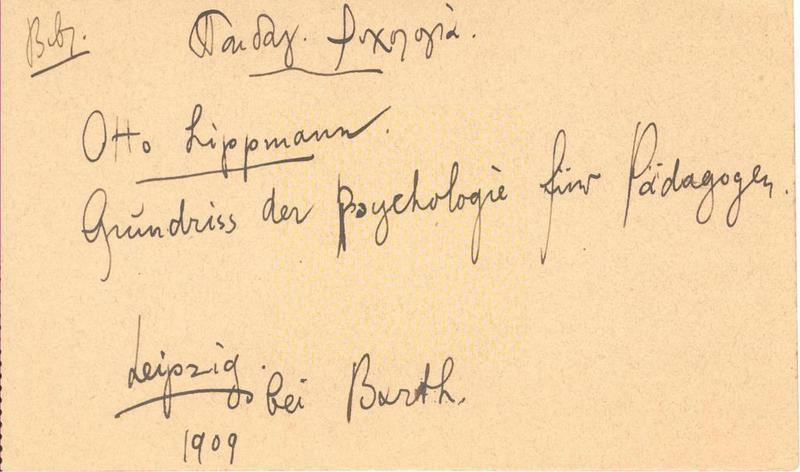 Βιβ. Παιδαγ. ψυχολογία.
Otto Lippmann.
Grundriss der Psychologie für Pädagogen.
Leipzig. bei Barth.
1909